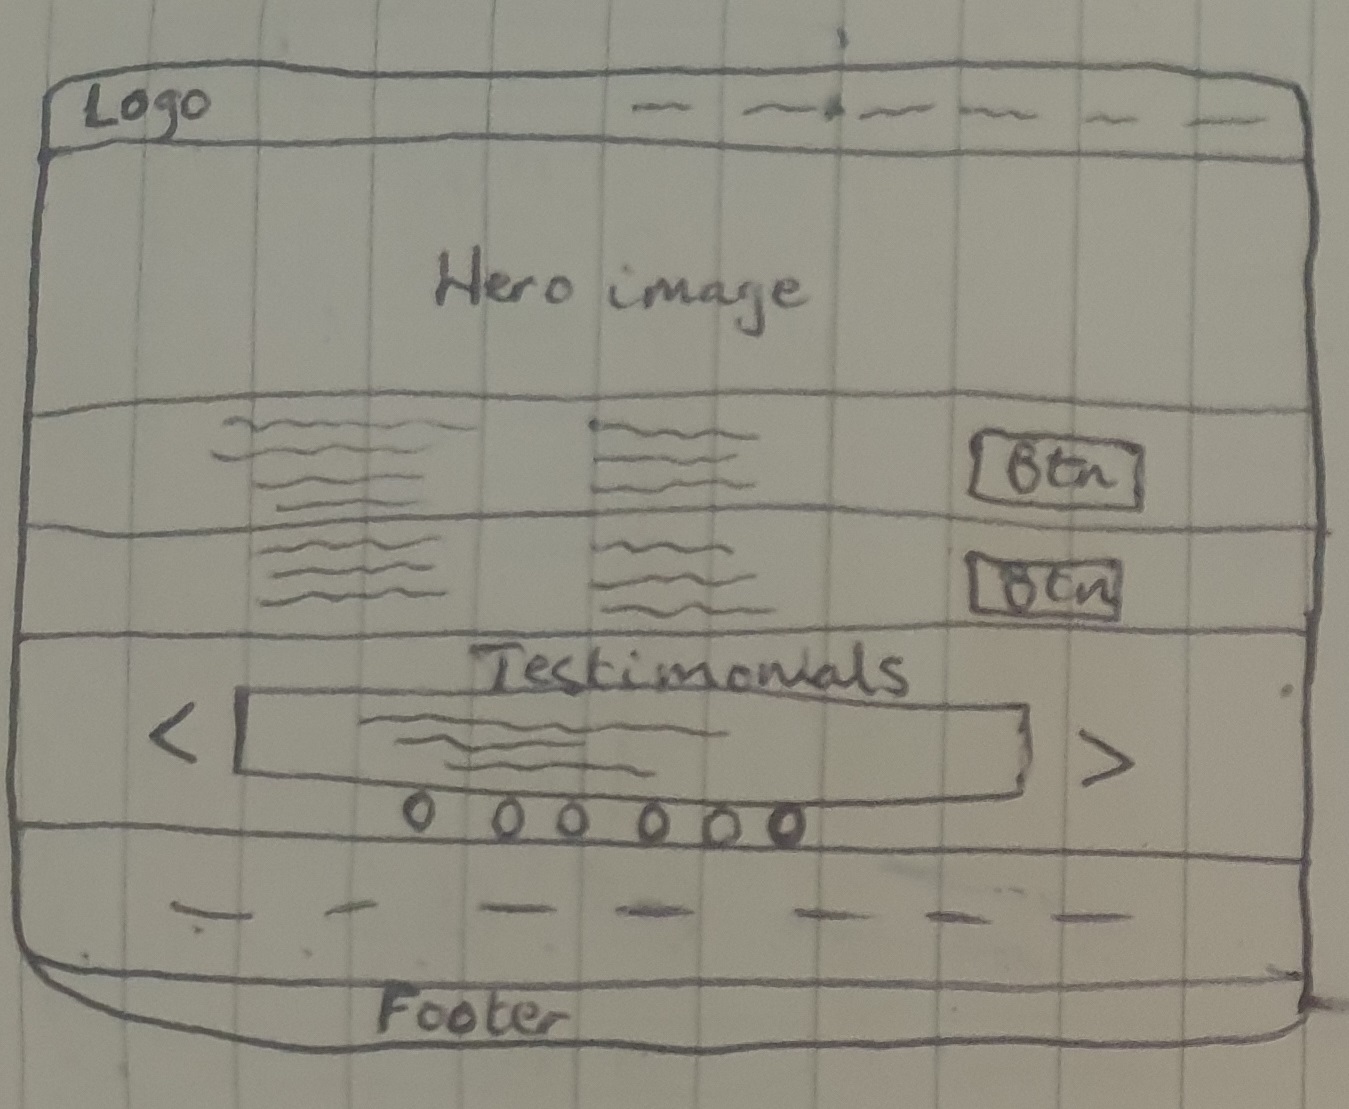 Logo
Hero image
Btn
Btn
Testimonials
< >
Footer